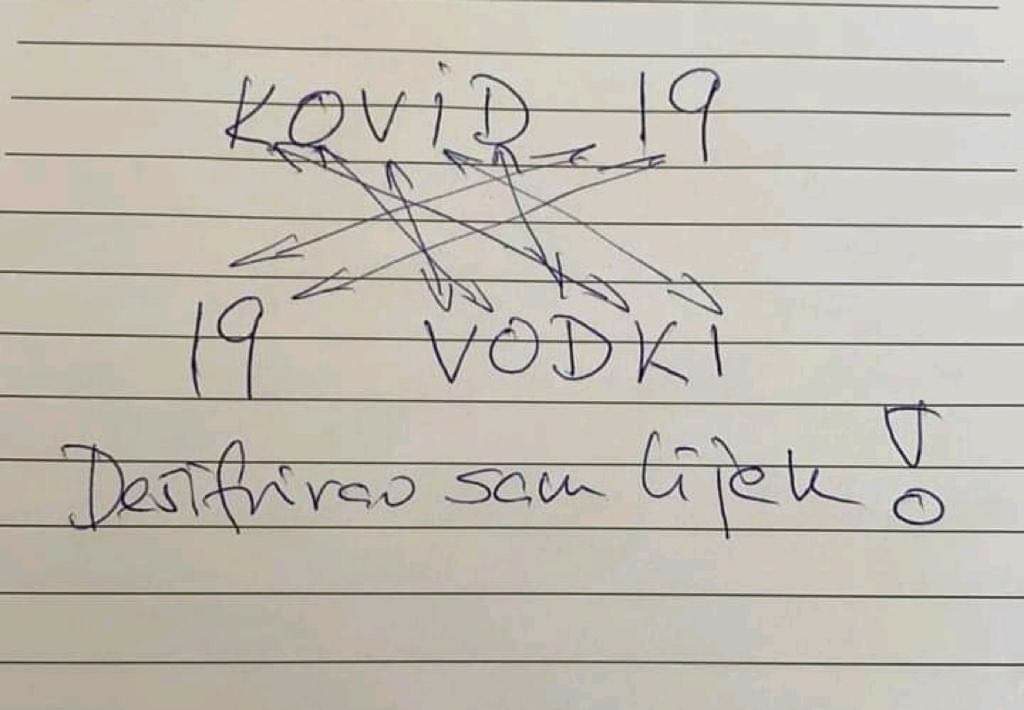 KOViD 19
19 VODKI
Dešifrirao sam lijek!